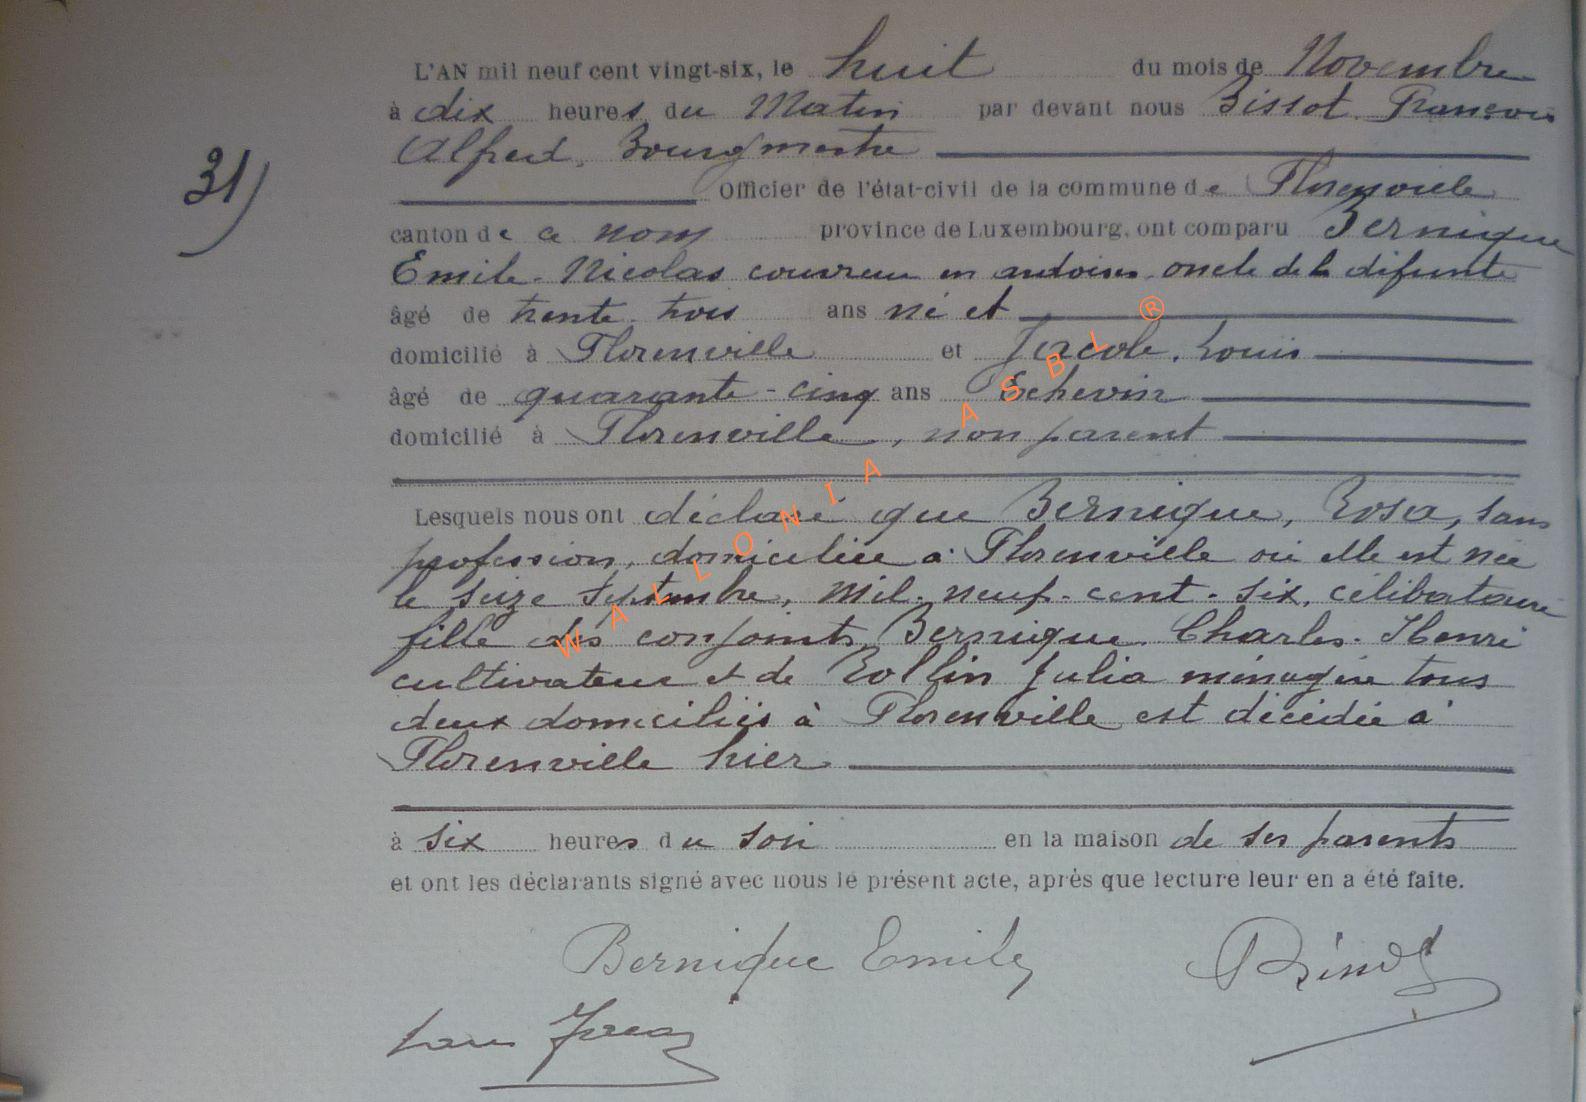 L'AN mil neuf cent vingt-six, le huit du mois de Novembre
à dix heures du Matin par devant nous Bissot François
Alfred, Bourgmestre
31)
Officier de l'état-civil de la commune de Florenville
canton de ce nom province de Luxembourg, ont comparu Bernique
Emile-Nicolas couvreur en ardoises oncle de la défunte
âgé de trente-trois ans né et
domicilié à Florenville et Louis
âgé de quarante-cinq ans Echevin
domicilié à Florenville, non parent
Lesquels nous ont déclaré que Bernique, Rosa, sans
profession, domiciliée à Florenville où elle est née
le seize Septembre, mil-neuf-cent-six, célibataire
fille des conjoints Bernique Charles-Henri
cultivateur et de Rollin Julia ménagère tous
deux domiciliés à Florenville est décédée à
Florenville hier
à six heures du soir en la maison de ses parents
et ont les déclarants signé avec nous le présent acte, après que lecture leur en a été faite.
Bernique Emile
WALLONIA ASBL ®